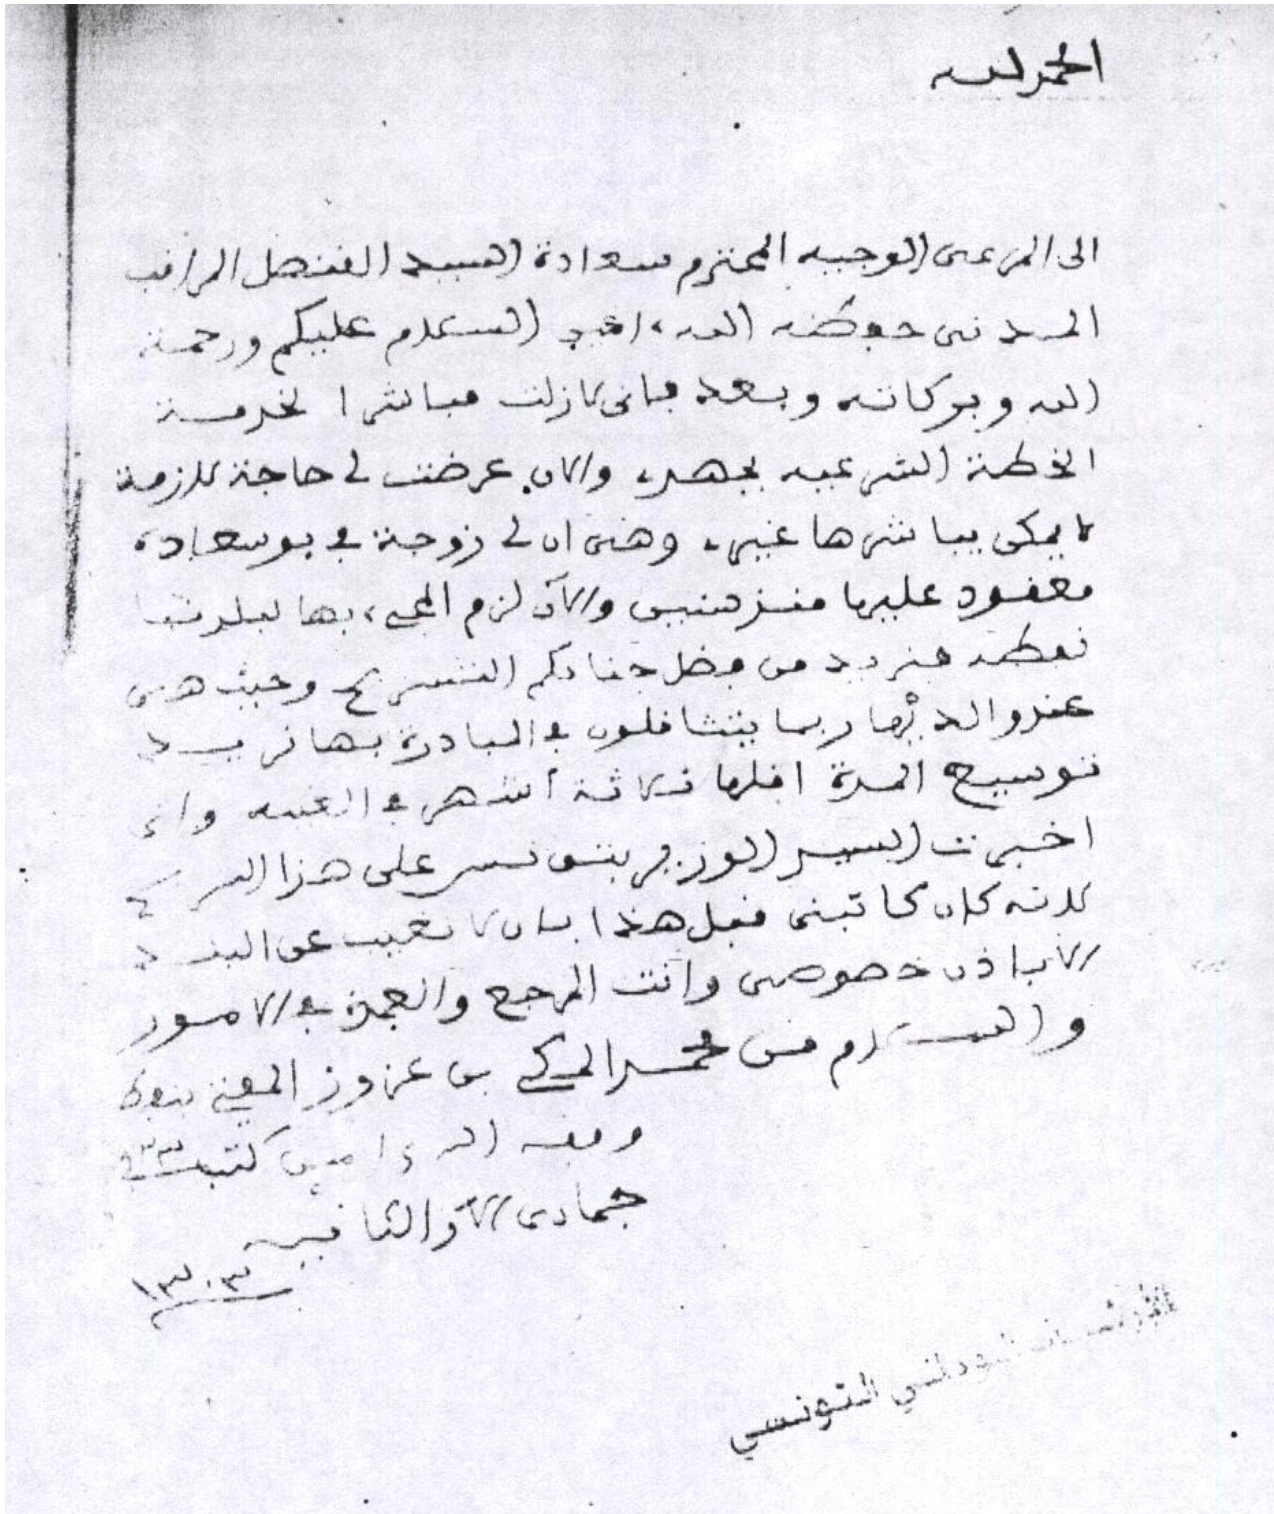 الحمد لله
الى المرعي الوجيه المحترم سعادة السيد القنصل المراقب
المدني حفظه الله، السلام عليكم ورحمة
الله وبركاته وبعد فاني لازلت مباشرا لخدمة
الخطة الشرعية بجهد، والآن عرضت لي حاجة لازمة
لا يمكن يباشرها غيري وهي ان لي زوجة في بوسعادة
معقود عليها منذ سنين والآن لزم المجيء بها لبلدنا
نفطة فنريد من فضل جنابكم التسريح وحيث هي
عند والديها ربما يتثاقلون في المبادرة بها نريد
توسيع المدة اقلها ثلاثة أشهر في الغيبة واني
اخبرت السيد الوزير بتونس على هذا
لانه كان كاتبني قبل هذا بان لا نغيب عن البلد
الا باذن خصوصي وانت المرجع والعمدة في الامور
والسلام من محمد المكي بن عزوز المفتي بنفطة
وفقه الله امين كتب في ٢٣
جمادى الثانية
١٣٠٣
الأرشيف الوطني التونسي